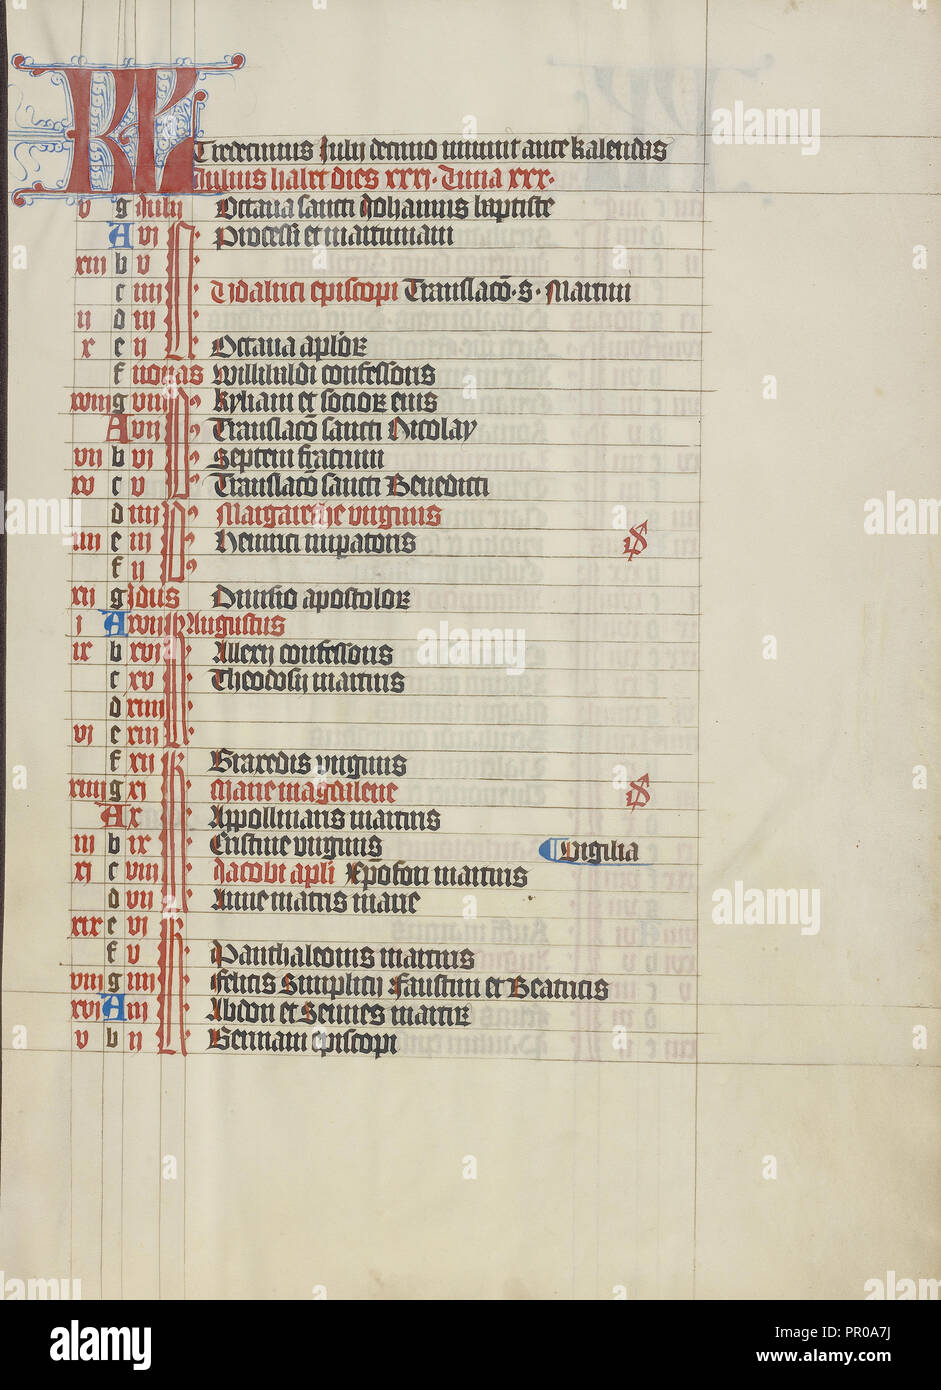 KL
Tredecimus Julij decimo innuit ante kalendas
Julius habet dies xxxi. Luna xxx.
g Julij Octaua sancti Johannis baptiste
A vi Processi et martiniani
xiii b v
c iiii Vdalrici episcopi Translacõ. S. Martini
ii d iii
x e ii Octaua aplõꝝ
f nonas Willibaldi confessoris
xviii g viii Kyliani et socioꝝ eius
A vii Translacõ sancti Nicolay
vii b vi Septem fratrum
xv c v Translacõ sancti Benedicti
d iiii Margarethe virginis
iiii e iii Heinrici imperatoris
f ii
xii g Idus Diuisio apostoloꝝ
i A xvii Augustus
ix b xvi Allexij confessoris
c xv Theodosij martiris
d xiiii
vi e xiii
f xii Praxedis virginis
xiiii g xi Marie magdalene
A x Appollinaris martiris
iii b ix Cristine virginis Vigilia
xi c viii Jacobi apli Xp̃ofori martiris
d vii Anne matris marie
xix e vi
f v Panthaleonis martiris
viii g iiii Felicis Simplicij Faustini et Beatricis
xvi A iii Abdon et Sennes martiꝝ
v b ii Germani episcopi
alamy
Image ID: PR0A7J
www.alamy.com